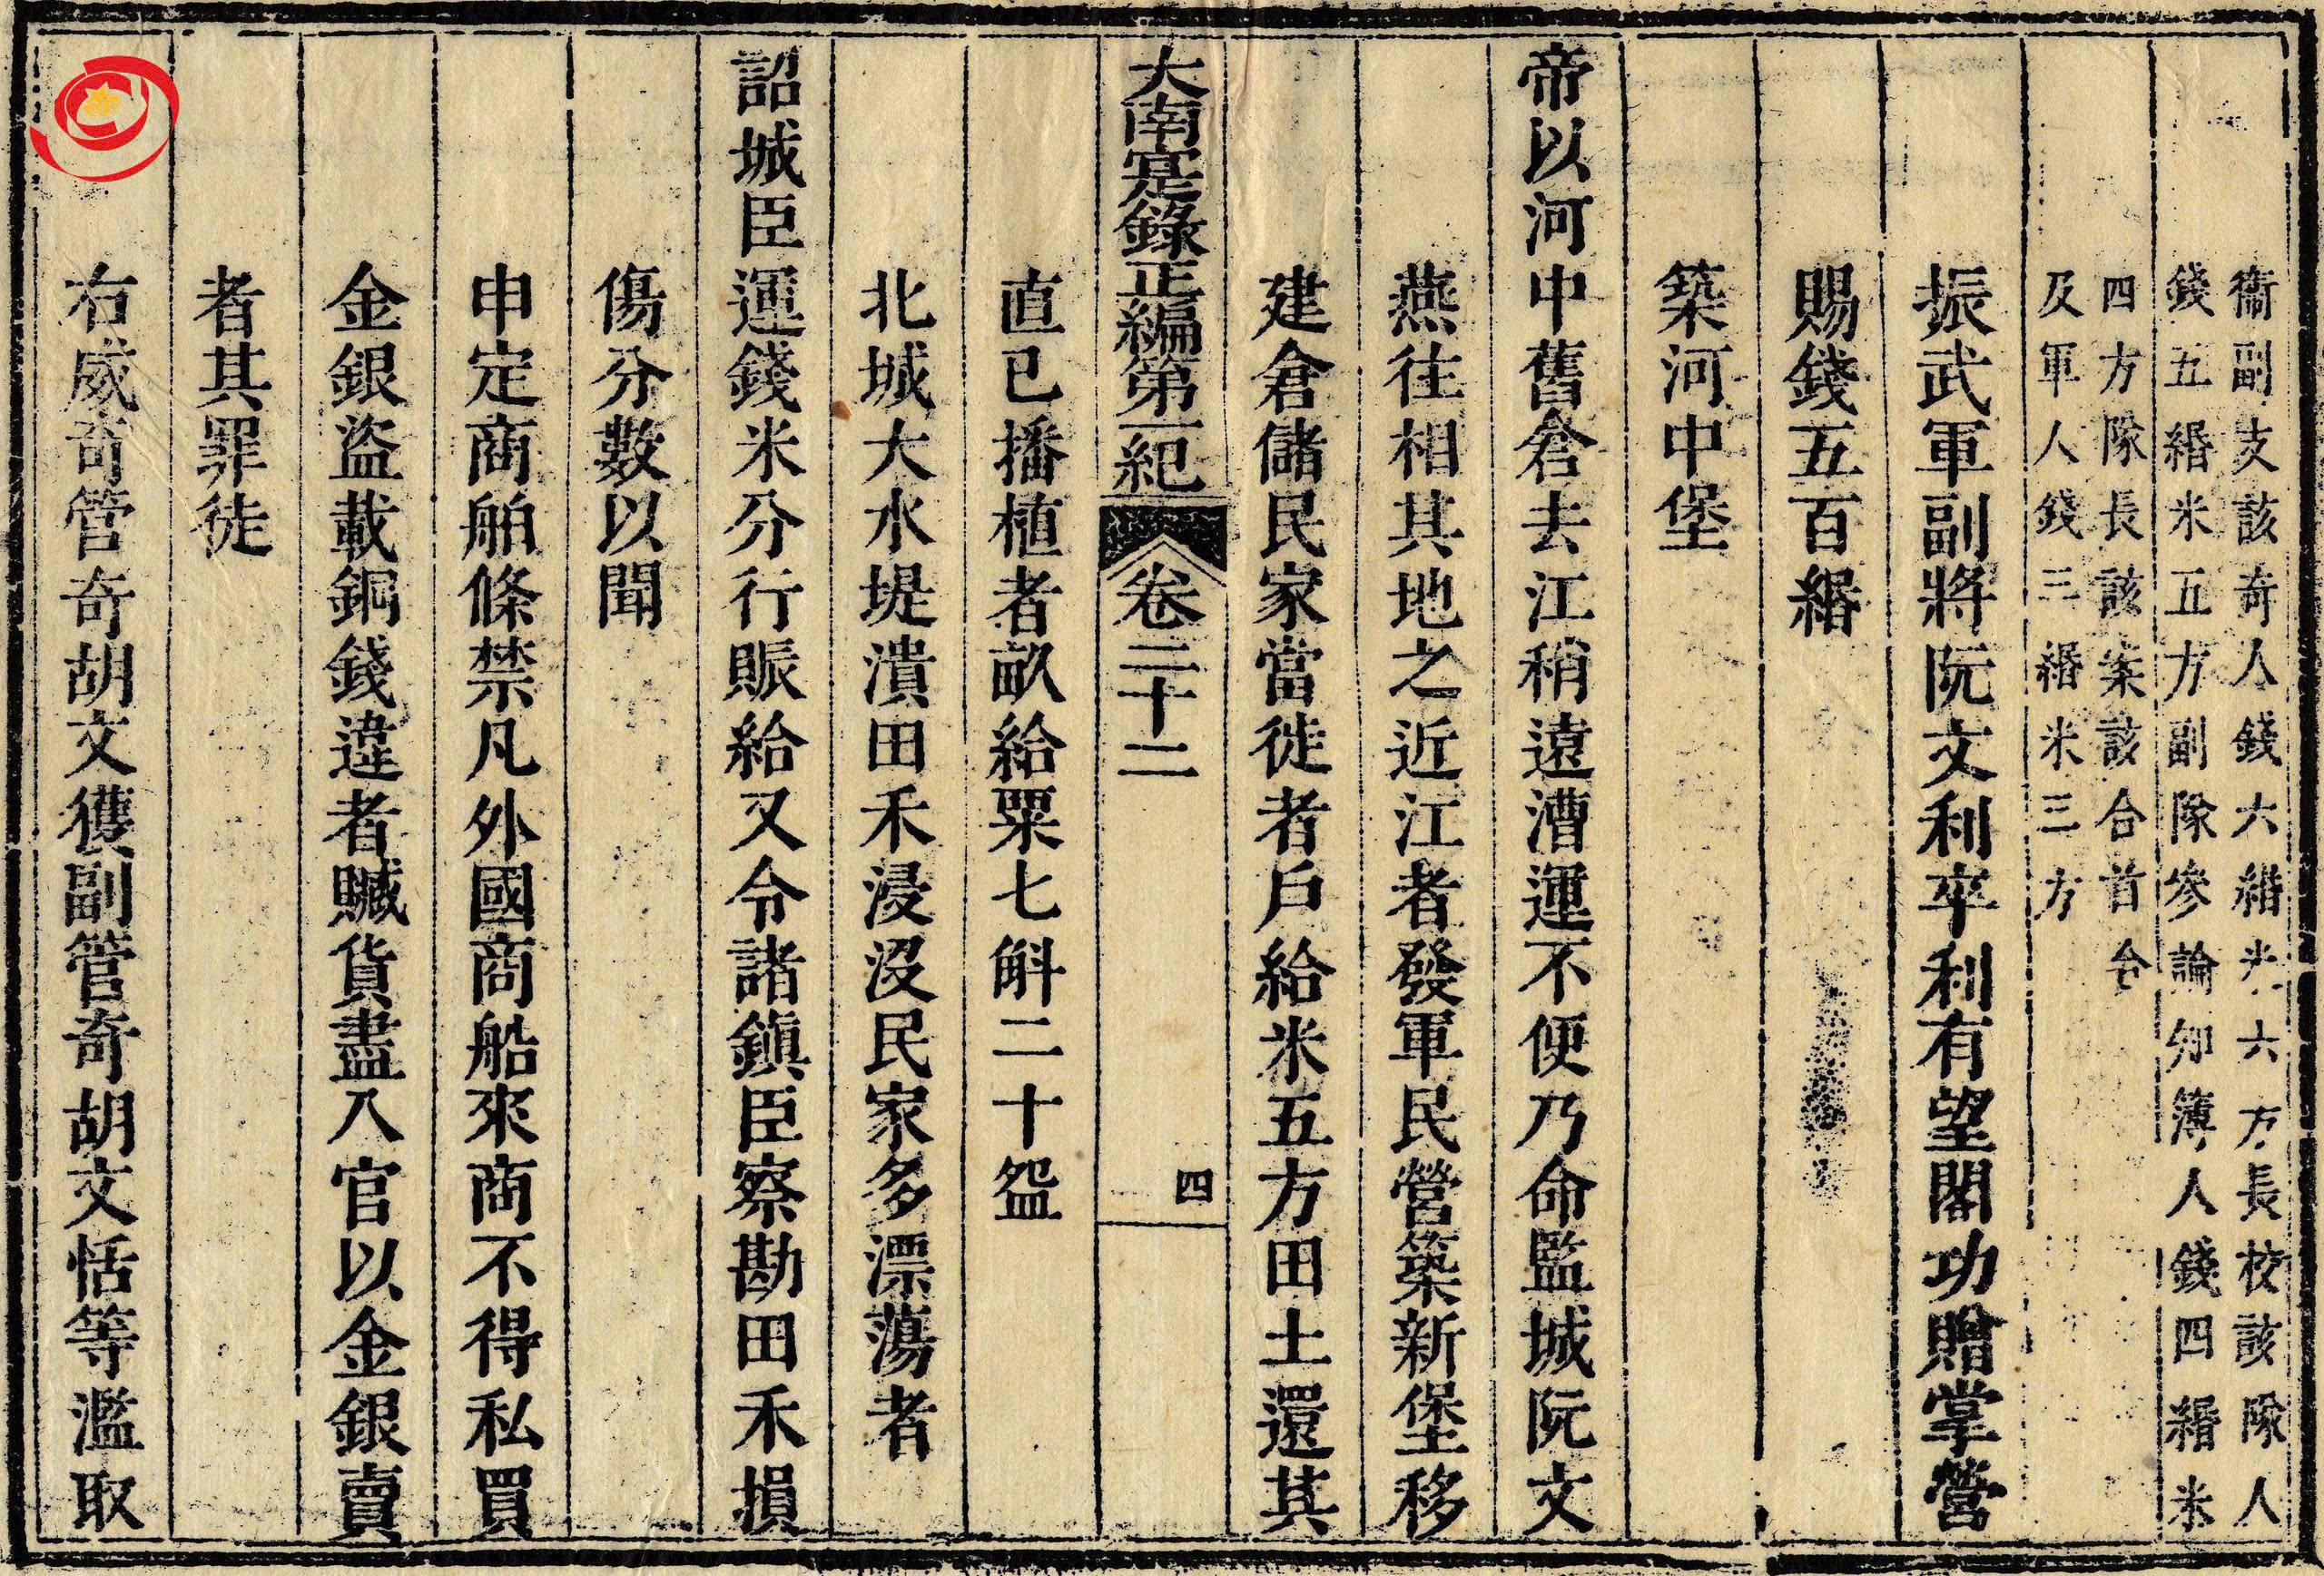 衞副支該奇人錢六緡米六方長校該隊人
錢五緡米五方副隊參論知簿人錢四緡米
四方隊長該案該合首合
及軍人錢三緡米三方
振武軍副將阮文利卒利有望閣功贈掌營
賜錢五百緡
築河中堡
帝以河中舊倉去江稍遠漕運不便乃命監城阮文
燕往相其地之近江者發軍民營築新堡移
建倉儲民家當徙者戶給米五方田土還其
大南寔錄正編第一紀 卷二十二 四
直已播植者畝給粟七斛二十盌
北城大水堤潰田禾浸沒民家多漂蕩者
詔城臣運錢米分行賑給又令諸鎮臣察勘田禾損
傷分數以聞
申定商舶條禁凡外國商船來商不得私買
金銀盜載銅錢違者贓貨盡入官以金銀賣
者其罪徒
右威奇管奇胡文獲副管奇胡文恬等濫取